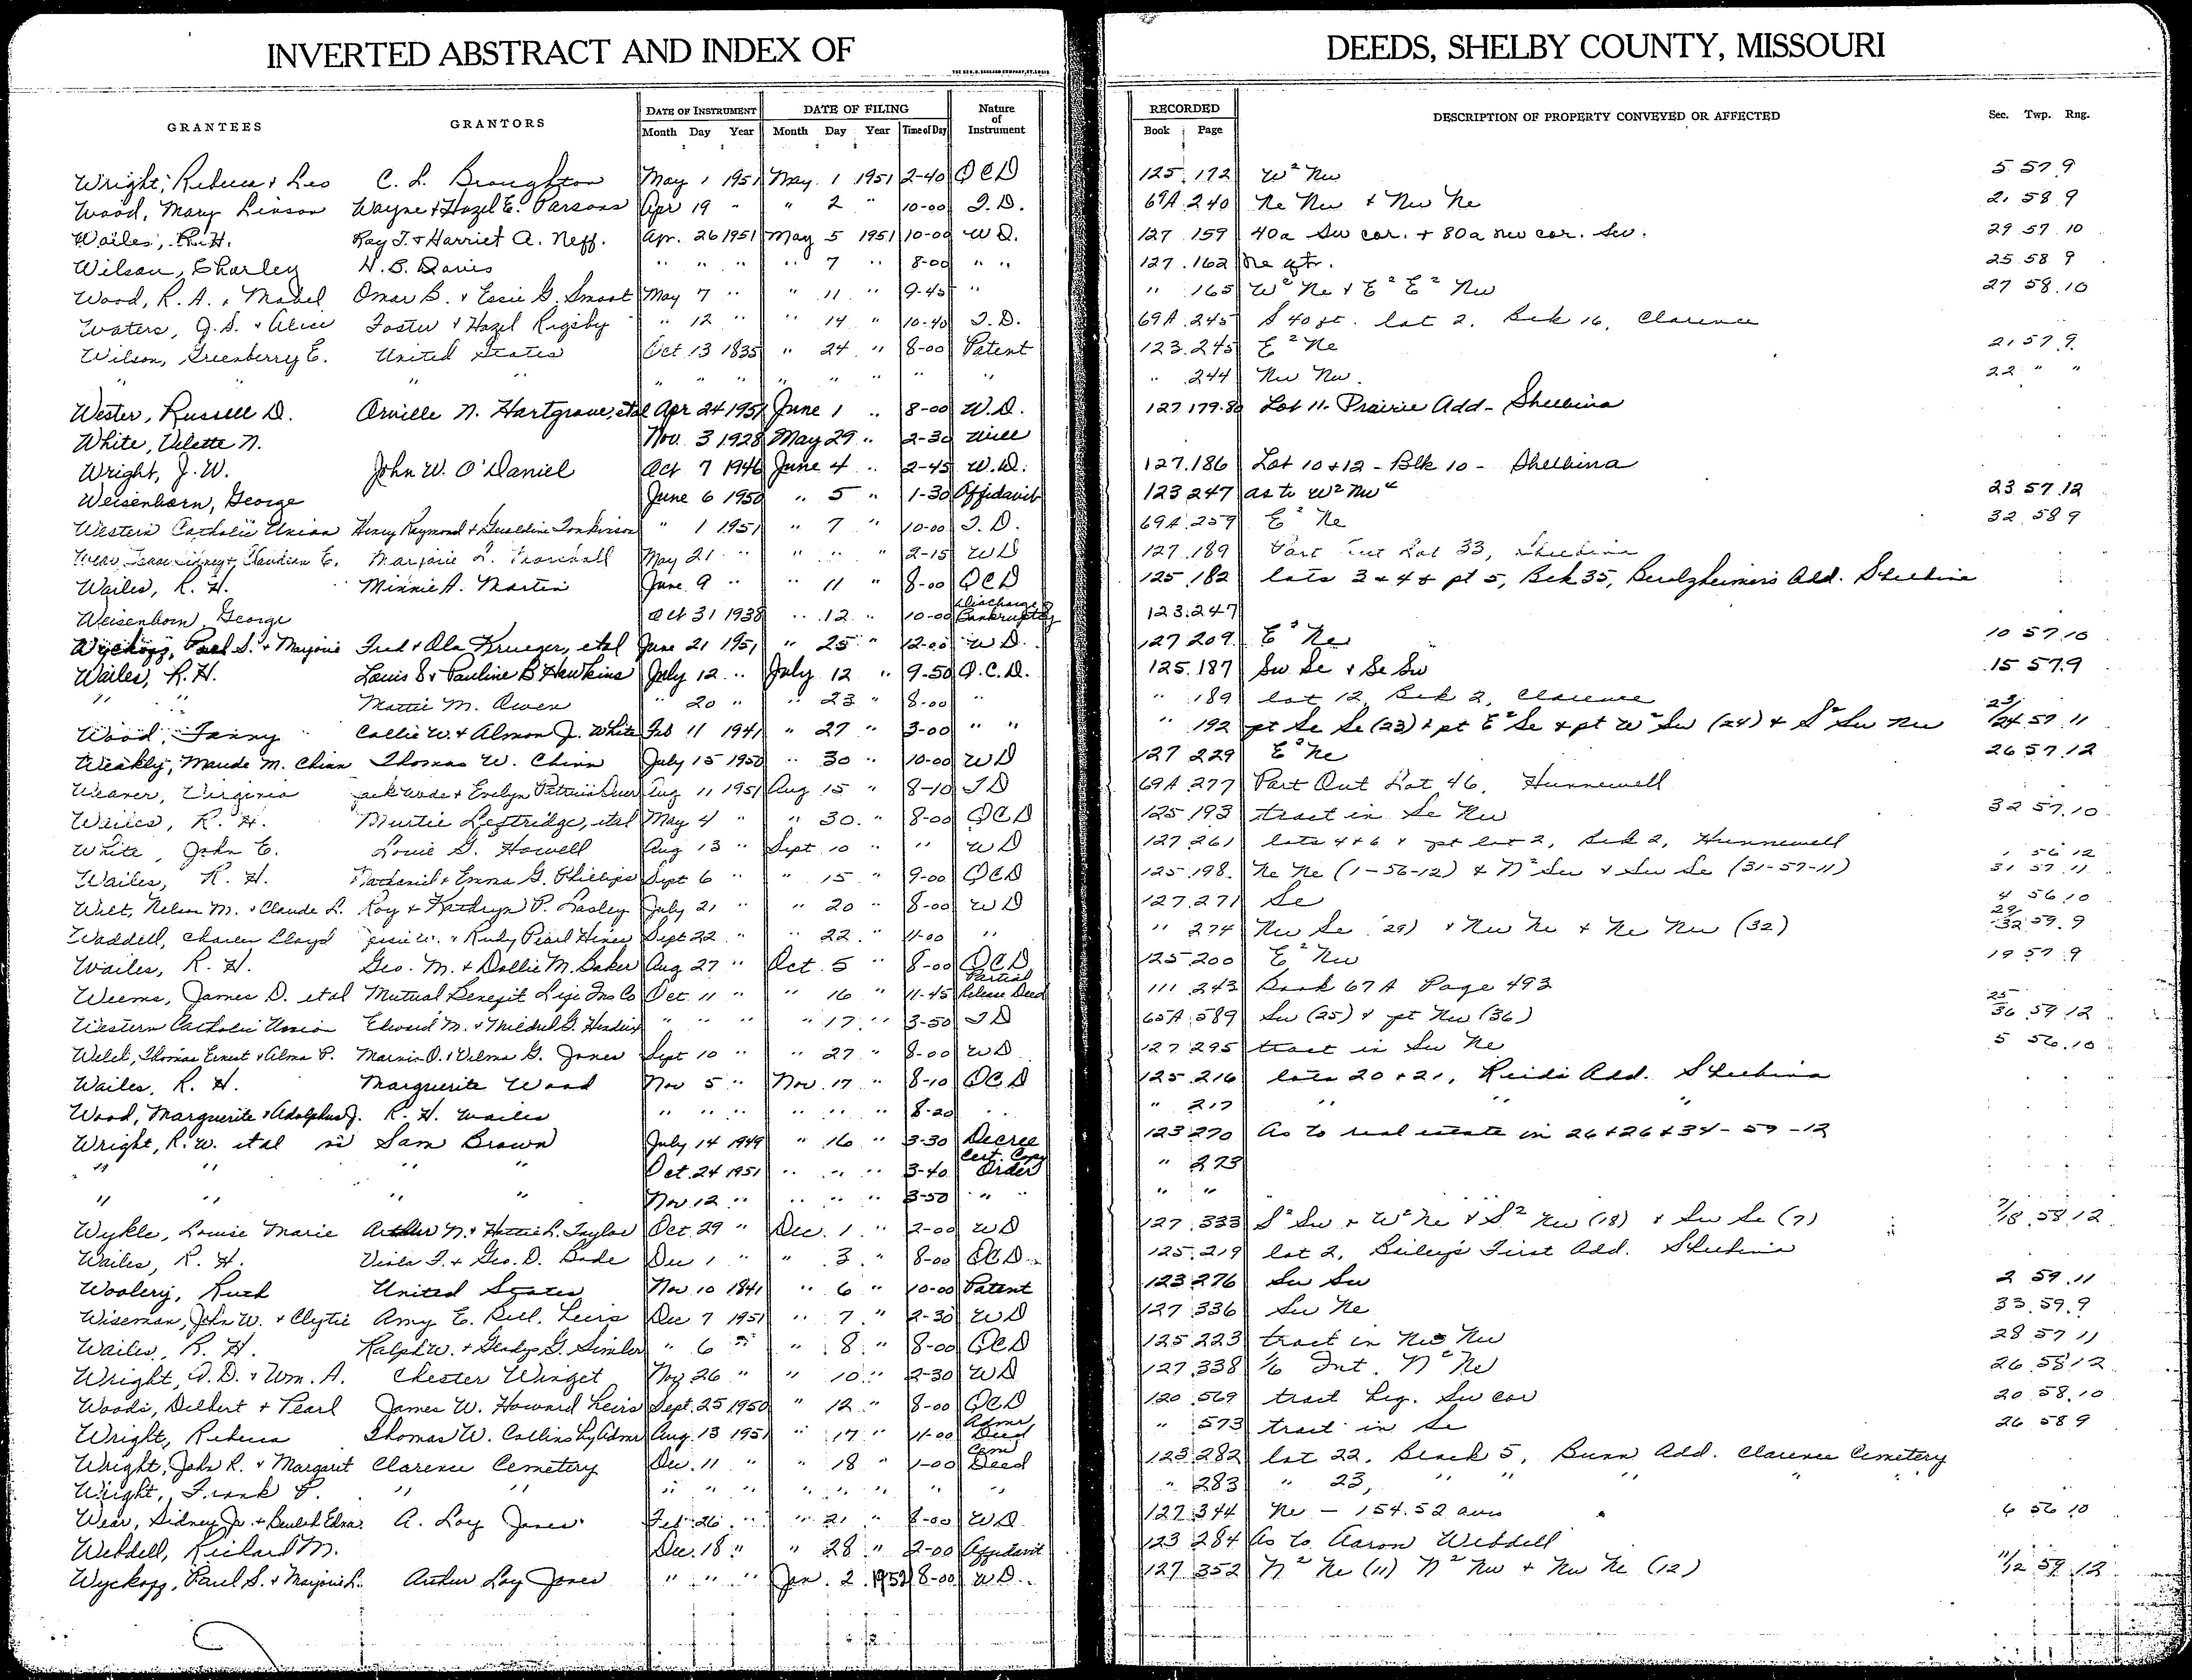 INVERTED ABSTRACT AND INDEX OF DEEDS, SHELBY COUNTY, MISSOURI
GRANTEES GRANTORS DATE OF INSTRUMENT DATE OF FILING Nature of Instrument RECORDED DESCRIPTION OF PROPERTY CONVEYED OR AFFECTED Sec. Twp. Rng.
Month Day Year Month Day Year Time of Day Book Page
Wright, Rebecca & Leo C. L. Broughton May 1 1951 May 1 1951 2-40 QCD 125 172 W² Nw 5 57 9
Wood, Mary Linson Wayne & Hazel E. Parsons Apr 19 " " 2 " 10-00 T.D. 69A 240 Ne Nw & Nw Ne 2 58 9
Wailes, R.H. Ray T. & Harriet A. Neff. Apr. 26 1951 May 5 1951 10-00 WD. 127 159 40a Sw cor. + 80a nw cor. Sw. 29 57 10
Wilson, Charley H. B. Davis " " " " 7 " 8-00 " " 127 162 Ne qtr. 25 58 9
Wood, R. A. & Mabel Omar B. & Essie G. Smoot May 7 " " 11 " 9-45 " " 165 W² Ne & E² E² Nw 27 58 10
Waters, J. S. & Alice Foster & Hazel Rigsby " 12 " " 14 " 10-40 T.D. 69A 245 S 40 ft. lot 2, Blk 16, Clarence
Wilson, Greenberry E. United States Oct 13 1835 " 24 " 8-00 Patent 123 245 E² Ne 21 57 9
" " " " " " " " " " " " " 244 Nw Nw. 22 " "
Wester, Russell D. Orville N. Hartgrove, etal Apr 24 1951 June 1 " 8-00 W.D. 127 179-80 Lot 11- Prairie Add- Shelbina
White, Velette N. Nov. 3 1928 May 29 " 2-30 Will
Wright, J. W. John W. O'Daniel Oct 7 1946 June 4 " 2-45 W.D. 127 186 Lot 10 & 12 - Blk 10 - Shelbina
Weisenborn, George June 6 1950 " 5 " 1-30 Affidavit 123 247 as to W² Nw⁴ 23 57 12
Western Catholic Union Henry Raymond & Geraldine Tonkinson " 1 1951 " 7 " 10-00 T.D. 69A 259 E² Ne 32 58 9
Claudian E. Marjorie L. May 21 " " " " 2-15 WD 127 189 Part Out Lot 33, Shelbina
Wailes, R. H. Minnie A. Martin June 9 " " 11 " 8-00 QCD 125 182 lots 3 & 4 & pt 5, Blk 35, Benlzheimer's Add. Shelbina
Weisenborn, George Oct 31 1938 " 12 " 10-00 Discharge of Bankruptcy 123 247
Wyckoff, Paul S. & Marjorie Fred & Ola Krueger, etal June 21 1951 " 25 " 12-00 WD. 127 209 E² Ne 10 57 10
Wailes, R. H. Louis S & Pauline B Hawkins July 12 " July 12 " 9-50 Q.C.D. 125 187 Sw Se & Se Sw 15 57 9
" " Mattie M. Owen " 20 " " 23 " 8-00 " " 189 lot 12, Blk 2, Clarence
Wood, Fanny Callie W. & Almon J. White Feb 11 1941 " 27 " 3-00 " " " 192 pt Se Se (23) & pt E² Se & pt W² Sw (24) & S² Sw Nw 23/24 57 11
Weakly, Maude M. Chinn Thomas W. Chinn July 15 1950 " 30 " 10-00 WD 127 229 E² Ne 26 57 12
Weaver, Virginia Jack Wade & Evelyn Patricia Aug 11 1951 Aug 15 " 8-10 TD 69A 277 Part Out Lot 46, Hunnewell
Wailes, R. H. Murtie Lestridge, etal May 4 " " 30 " 8-00 QCD 125 193 tract in Se Nw 32 57 10
White, John E. Louie G. Howell Aug 13 " Sept 10 " " WD 127 261 lots 4 & 6 & pt lot 2, Blk 2, Hunnewell
Wailes, R. H. Nathaniel & Emma G. Phillips Sept 6 " " 15 " 9-00 QCD 125 198 Ne Ne (1-56-12) & N² Sw & Sw Se (31-57-11) 1 56 12 31 57 11
Wilt, Nelson M. & Claude L. Roy & Kathryn P. Lasley July 21 " " 20 " 8-00 WD 127 271 Se 4 56 10
Waddell, Charles Lloyd Jessie W. & Ruby Pearl Hines Sept 22 " " 22 " 11-00 " " 274 Nw Se (29) & Nw Ne & Ne Nw (32) 29/32 59 9
Wailes, R. H. Geo. M. & Dollie M. Baker Aug 27 " Oct 5 " 8-00 QCD 125 200 E² Nw 19 57 9
Weems, James D. etal Mutual Benefit Life Ins Co Oct 11 " " 16 " 11-45 Partial Release Deed 111 243 Book 67A Page 493
Western Catholic Union Edward M. & Mildred G. " " " " 17 " 3-50 TD 65A 589 Sw (25) & pt Nw (36) 25/36 59 12
Welch, Thomas Ernest & Alma P. Marvin O. & Velma G. Jones Sept 10 " " 27 " 8-00 WD 127 295 tract in Sw Ne 5 56 10
Wailes, R. H. Marguerite Wood Nov 5 " Nov. 17 " 8-10 QCD 125 216 lots 20 & 21, Reids Add. Shelbina
Wood, Marguerite & Adolphus J. R. H. Wailes " " " " " " 8-20 " " " 217 " " "
Wright, R. W. etal vs Sam Brown July 14 1949 " 16 " 3-30 Decree 123 270 As to real estate in 26 & 26 & 34-59-12
" " " " Oct. 24 1951 " " " 3-40 Cert. Copy Order " 273
" " " " Nov 12 " " " " 3-50 " " " "
Wykle, Louise Marie Arthur N. & Hattie L. Taylor Oct. 29 " Dec. 1 " 2-00 WD 127 333 S² Sw & W² Ne & S² Nw (18) & Sw Se (7) 7/18 58 12
Wailes, R. H. Viola F. & Geo. D. Bade Dec 1 " " 3 " 8-00 QCD. 125 219 lot 2, Bailey's First Add. Shelbina
Woolery, Ruth United States Nov 10 1841 " 6 " 10-00 Patent 123 276 Sw Sw 2 59 11
Wiseman, John W. & Clytie Amy E. Bell, Heirs Dec 7 1951 " 7 " 2-30 WD 127 336 Sw Ne 33 59 9
Wailes, R. H. Ralph W. & Gladys G. Simler " 6 " " 8 " 8-00 QCD 125 223 tract in Nw Nw 28 57 11
Wright, O. D. & Wm. A. Chester Winget Nov 26 " " 10 " 2-30 WD 127 338 1/6 Int. N² Ne 26 58 12
Woods, Delbert & Pearl James W. Howard Heirs Sept. 25 1950 " 12 " 8-00 QCD 120 569 tract beg. Sw cor 20 58 10
Wright, Rebecca Thomas W. Collins by Admr Aug. 13 1951 " 17 " 11-00 Admr Deed " 573 tract in Se 26 58 9
Wright, John R. & Margaret Clarence Cemetery Dec. 11 " " 18 " 1-00 Cem Deed 123 282 lot 22, Block 5, Bunn Add. Clarence Cemetery
Wright, Frank P. " " " " " " " " " " " 283 " 23, " " " " "
Wear, Sidney Jr. & Beulah Edna A. Loy Jones Feb 26 " " 21 " 8-00 WD 127 344 Ne - 154.52 acres 6 56 10
Weddell, Richard M. Dec. 18 " " 28 " 2-00 Affidavit 123 284 As to Aaron Weddell
Wyckoff, Paul S. & Marjorie L. Arthur Loy Jones " " " Jan. 2 1952 8-00 WD. 127 352 N² Ne (11) N² Nw & Nw Ne (12) 11/12 59 12